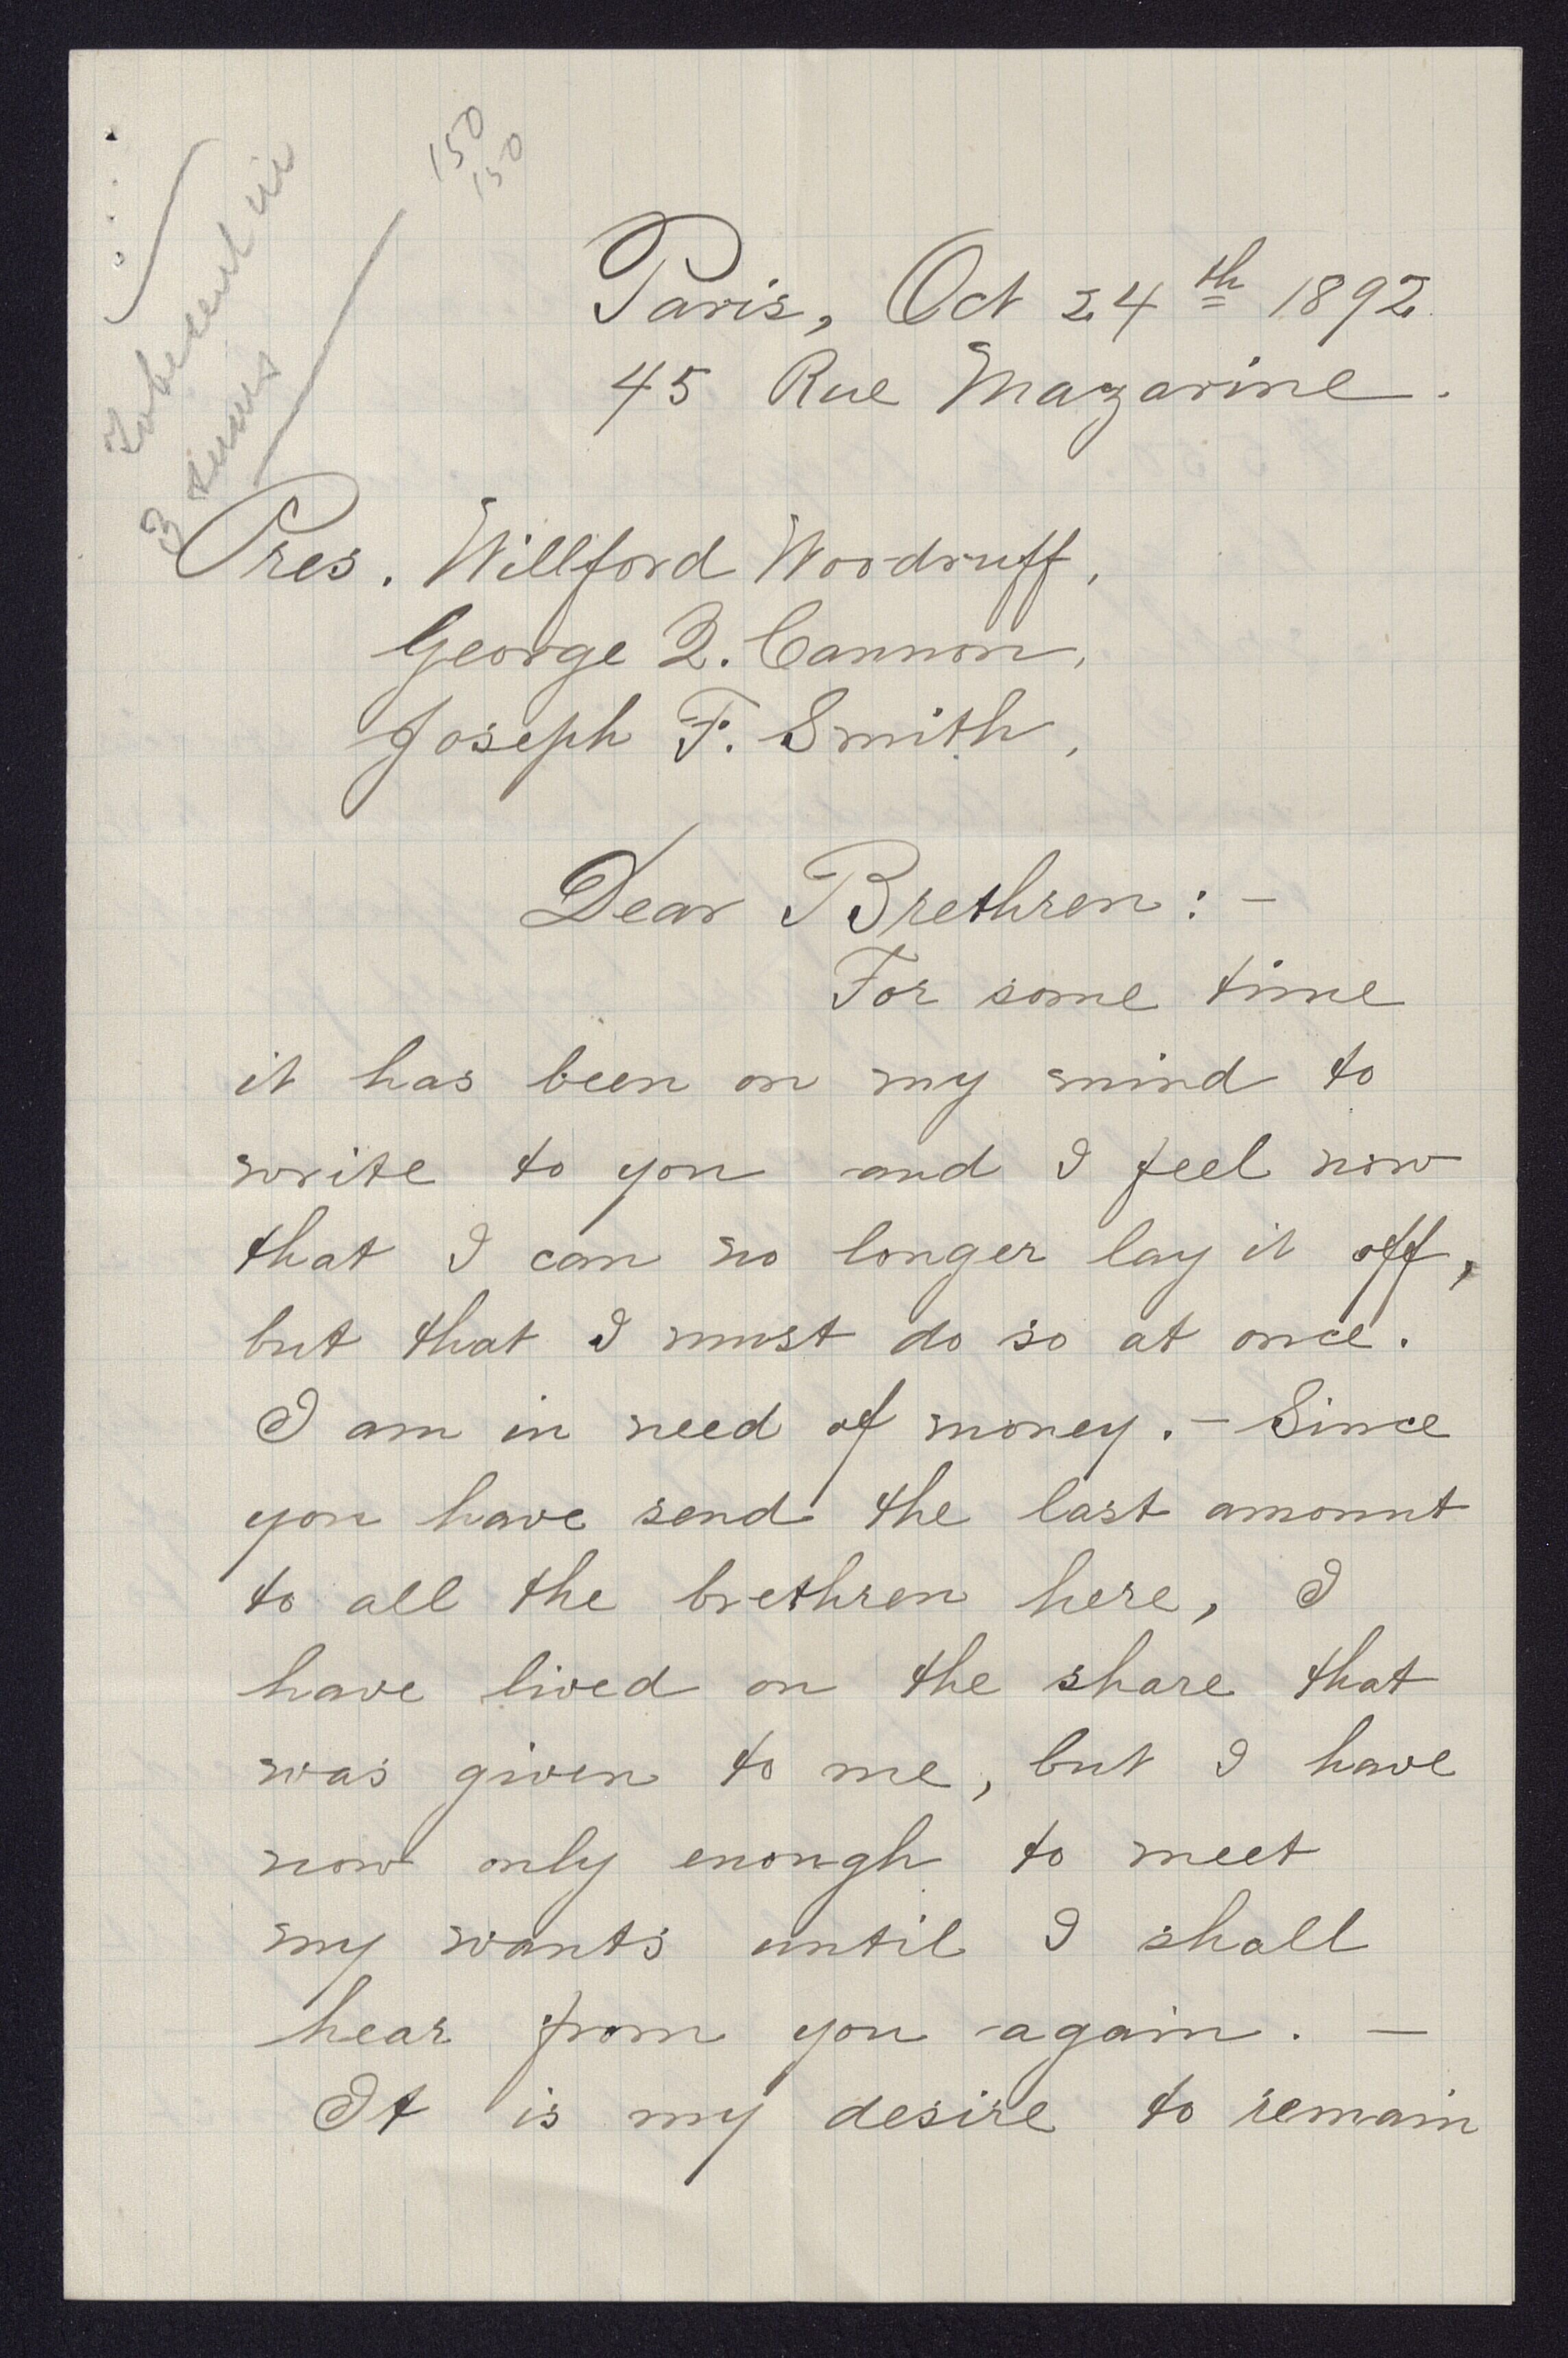 150
150
To be sent in
3 sums
Paris, Oct 24th 1892.
45 Rue Mazarine.
Pres. Willford Woodruff,
George Q. Cannon,
Joseph F. Smith,
Dear Brethren: -
For some time
it has been on my mind to
write to you and I feel now
that I can no longer lay it off,
but that I must do so at once.
I am in need of money. - Since
you have send the last amount
to all the brethren here, I
have lived on the share that
was given to me, but I have
now only enough to meet
my wants until I shall
hear from you again. —
It is my desire to remain